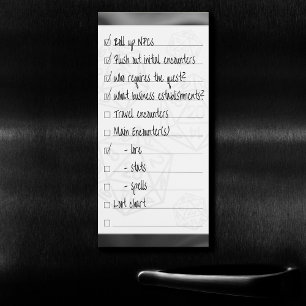 Roll up NPCs
Flush out initial encounters
who requires the quest?
what business establishments?
Travel encounters
Main Encounter(s)
- lore
- stats
- spells
Loot chart